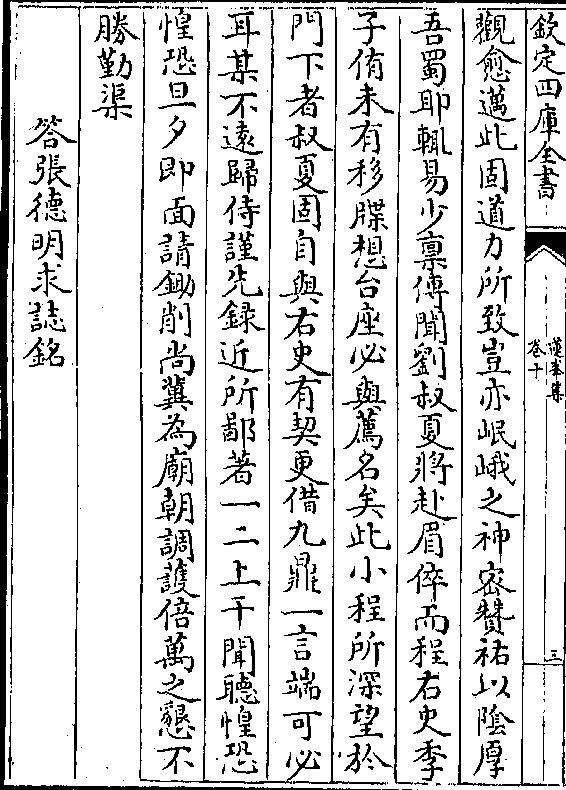 欽定四庫全書
卷十
三
觀愈邁此固道力所致豈亦岷峨之神密贊祐以陰厚
吾蜀耶輒易少稟傳聞劉叔夏將赴眉倅而程右史季
子侑未有移牒想台座必與薦名矣此小程所深望於
門下者叔夏固自與右史有契更借九鼎一言端可必
耳某不遠歸侍謹先録近所鄙著一二上干聞聽惶恐
惶恐旦夕即面請鋤削尚冀為廟朝調護倍萬之懇不
勝勤渠
答張徳明求誌銘